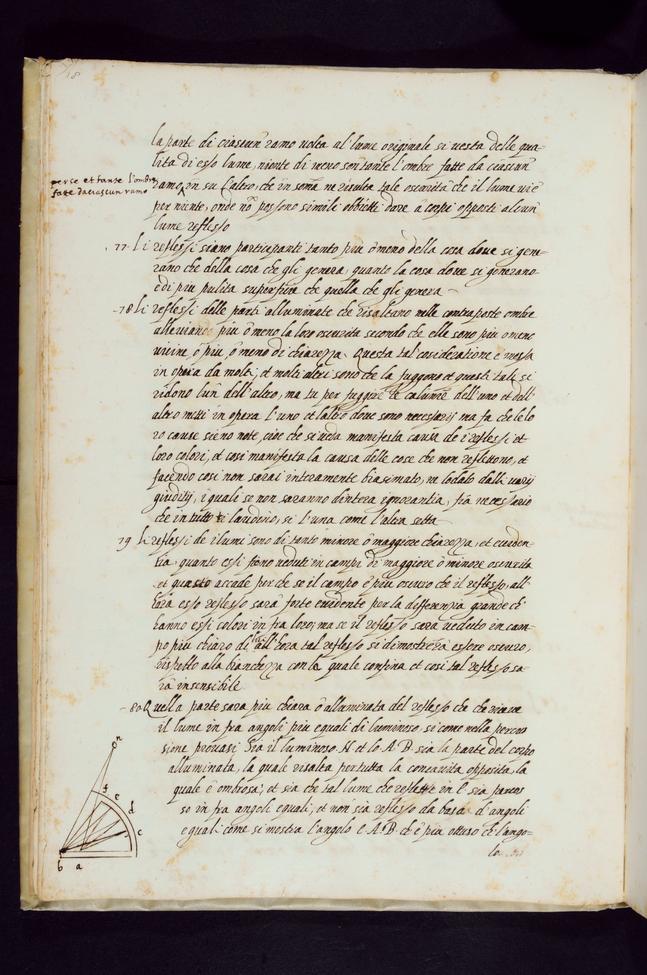 18
la parte di ciascun ramo volta al lume originale si vesta delle qua-
lita di esso lume, niente di meno son tante l'ombre fatte da ciascun
perse et tante l'ombre
fatte da ciascun ramo
ramo in su l'altro, che in soma ne risulta tale oscurita che il lume vi è
per niente, onde nō possono simile obbietti dare à corpi opposti alcun
lume reflesso
77 li reflessi siano participanti tanto piu ò meno della cosa dove si gene
rano che della cosa che gli genera, quanto la cosa dove si generano
è di piu pulita superfitie che quella che gli genera
78 li reflessi delle parti alluminate che risaltano nelle contraposte ombre
alleviando piu ò meno la loro oscurita secondo che elle sono piu ò meno
vicine, ò piu, ò meno di chiarezza. Questa tal cosideratione è messa
in opera da molti, et molti altri sono che la fuggono et questi tali si
ridono l'un dell'altro, ma tu per fuggire le calunie dell'uno et dell'
altro metti in opera l'uno et l'altro dove sono necessarij ma fa che le lo
ro cause sieno note, cioe che si veda manifesta causa de i reflessi et
loro colori, et cosi manifesta la causa delle cose che non reflettono, et
facendo cosi non sarai interamente biasimato, ne lodato dalli varij
giuditij, i quali se non saranno d'intera ignorantia, fia necessario
che in tutto ti laudino, si l'una come l'altra setta
79 li reflessi de i lumi sono di tanto minore ò maggiore chiarezza, et eviden-
tia, quanto essi fiono veduti in campi di maggiore ò minore oscurita
et questo accade perche se il campo è piu oscuro che il reflesso, all'
hora esso reflesso sarà forte evidente per la differenza grande ch'
hanno essi colori in fra loro, ma se il reflesso sarà veduto in cam-
po piu chiaro di lui all'hora tal reflesso si dimostrerà essere oscuro,
rispetto alla bianchezza con la quale confina et cosi tal reflesso sa
rà insensibile
80 Quella parte sara piu chiara ò alluminata del reflesso che riceve
il lume in fra angoli piu eguali di luminoso, si come nella percus
sione provasi. Sia il luminoso N et lo A B sia la parte del corpo
alluminata, la quale risalta per tutta la concavita opposita, la
quale è ombrosa; et sia che tal lume che reflette in E sia percos
so in fra angoli eguali, et non sia reflesso da basa d'angoli
eguali come si mostra l'angolo E A B ch'è piu ottuso ch'l'ango-
lo
n
f
e
d
c
b a